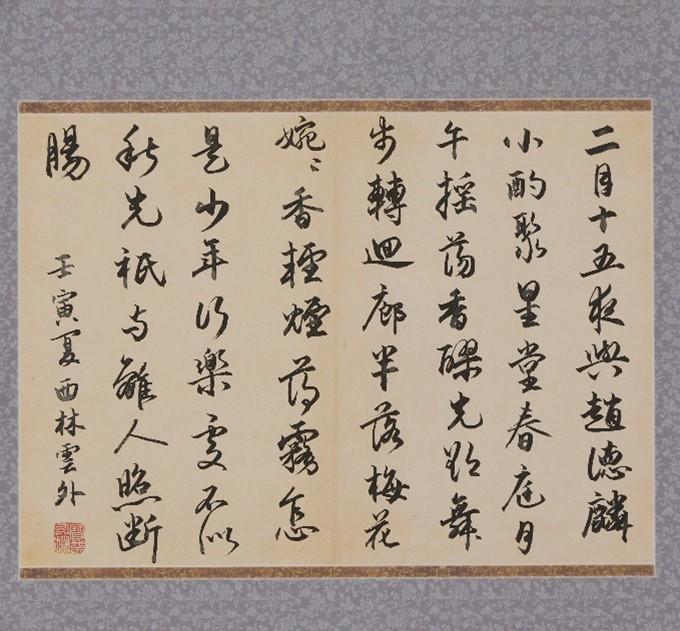 二月十五夜與趙德麟
小酌聚星堂春庭月
午摇蕩香醪光欲舞
步轉迴廊半落梅花
婉〻香輕煙薄霧怎
是少年行樂處不似
秋光祇与離人照斷
腸
壬寅夏西林雲外